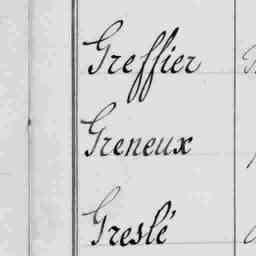 Greffier
Greneux
Greslé